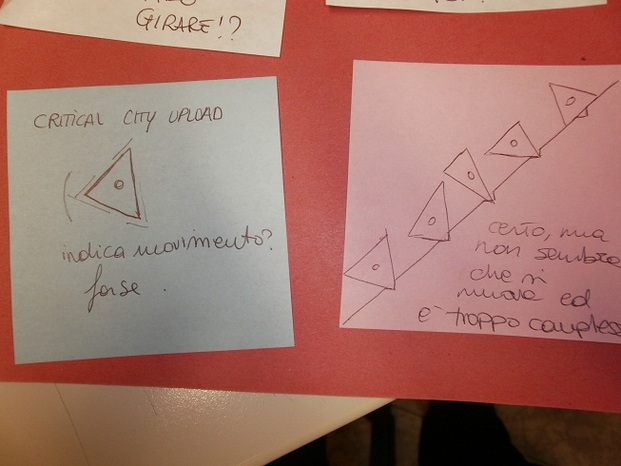 GIRARE!?
CRITICAL CITY UPLOAD
indica movimento?
forse.
certo, ma
non sembra
che si
muova ed
è troppo